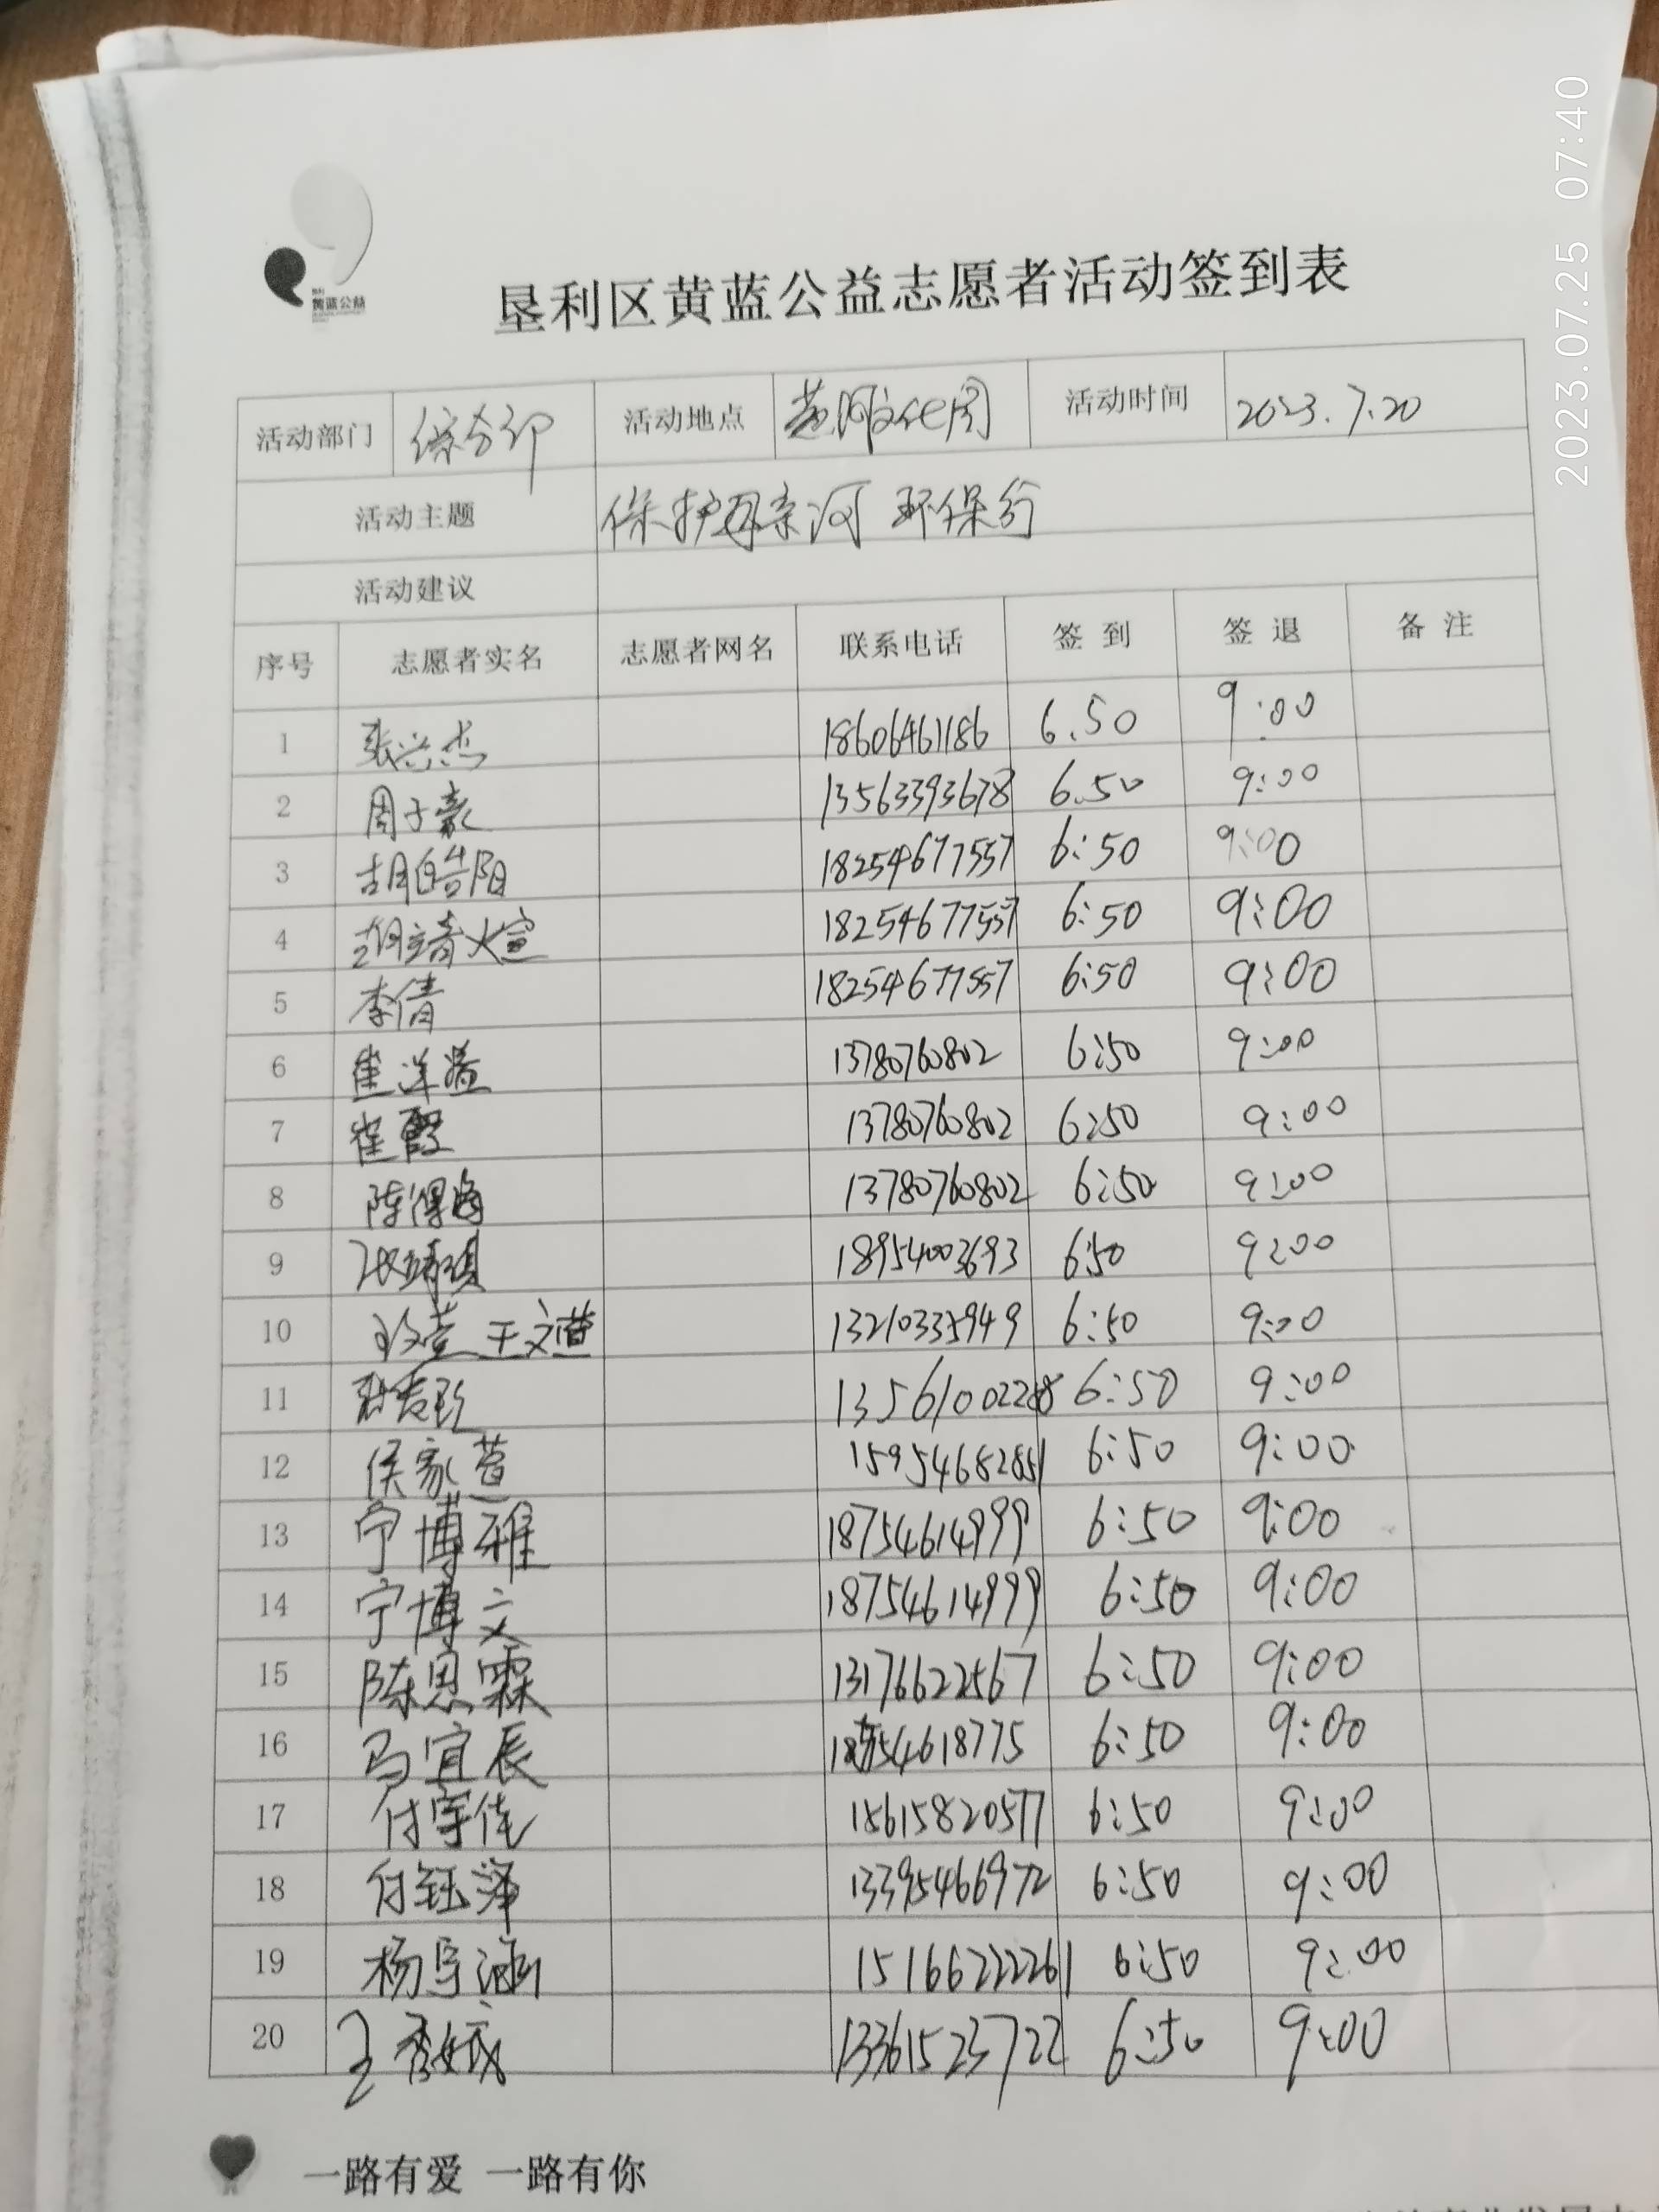 2023.07.25 07:40
黄蓝公益
垦利区黄蓝公益志愿者活动签到表
活动部门 综合部 活动地点 黄河文化园 活动时间 2023.7.20
活动主题 保护母亲河 环保行
活动建议
序号 志愿者实名 志愿者网名 联系电话 签到 签退 备注
1 张兴杰 18606461186 6.50 9:00
2 周子豪 13563393678 6.50 9:00
3 胡皓阳 18254677557 6:50 9:00
4 胡靖煊 18254677557 6:50 9:00
5 李倩 18254677557 6:50 9:00
6 崔洋溢 13780760802 6:50 9:00
7 崔霞 13780760802 6:50 9:00
8 陈得海 13780760802 6:50 9:00
9 18954003693 6:50 9:00
10 王文萱 13210335949 6:50 9:00
11 6:50 9:00
12 侯家萱 15954682851 6:50 9:00
13 宁博雅 18754614999 6:50 9:00
14 宁博文 18754614999 6:50 9:00
15 陈思霖 13176622567 6:50 9:00
16 马宜辰 6:50 9:00
17 付宇佳 15615820577 6:50 9:00
18 付钰泽 13395466972 6:50 9:00
19 杨导涵 15166222261 6:50 9:00
20 王秀娥 13361523722 6:50 9:00
一路有爱 一路有你